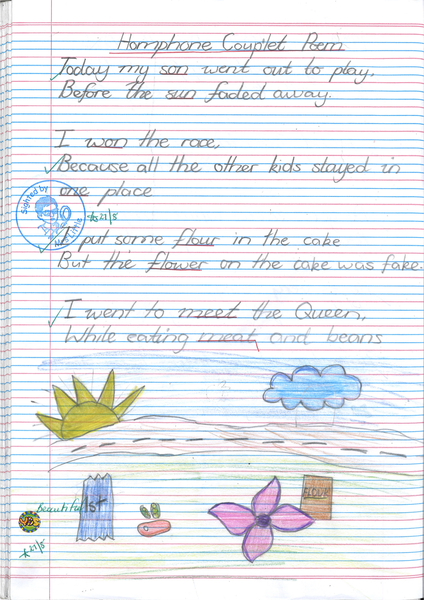 Homphone Couplet Poem
Today my son went out to play,
Before the sun faded away.
I won the race,
Because all the other kids stayed in
one place
Sighted by
Mrs Little
21/5
I put some flour in the cake
But the flower on the cake was fake.
I went to meet the Queen,
While eating meat and beans
FLOUR
beautiful
1st
21/5